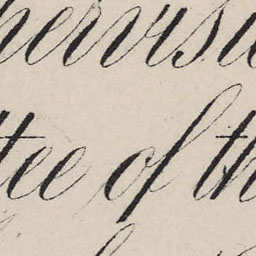 hervisi
tee of th